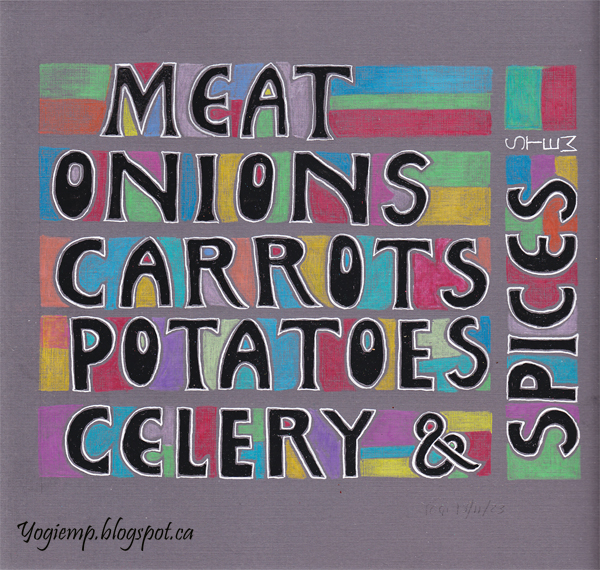 MEAT
ONIONS
CARROTS
POTATOES
CELERY &
SPICES
STEW
Yogiemp.blogspot.ca